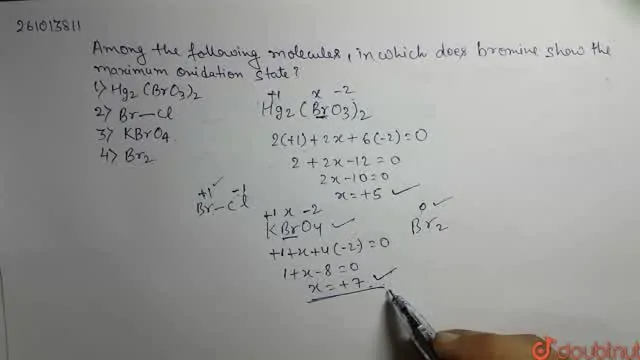 261013811
Among the following molecules, in which does bromine show the
maximum oxidation state?
1) Hg2 (BrO3)2
2) Br-Cl
3) KBrO4
4) Br2
+1 x -2
Hg2 (BrO3)2
2(+1)+2x+6(-2)=0
2+2x-12=0
2x-10=0
x=+5 ✓
+1 ✓ -1
Br-Cl
+1 x -2
KBrO4 ✓
+1+x+4(-2)=0
1+x-8=0
x=+7 ✓
0 ✓
Br2
doubtnut